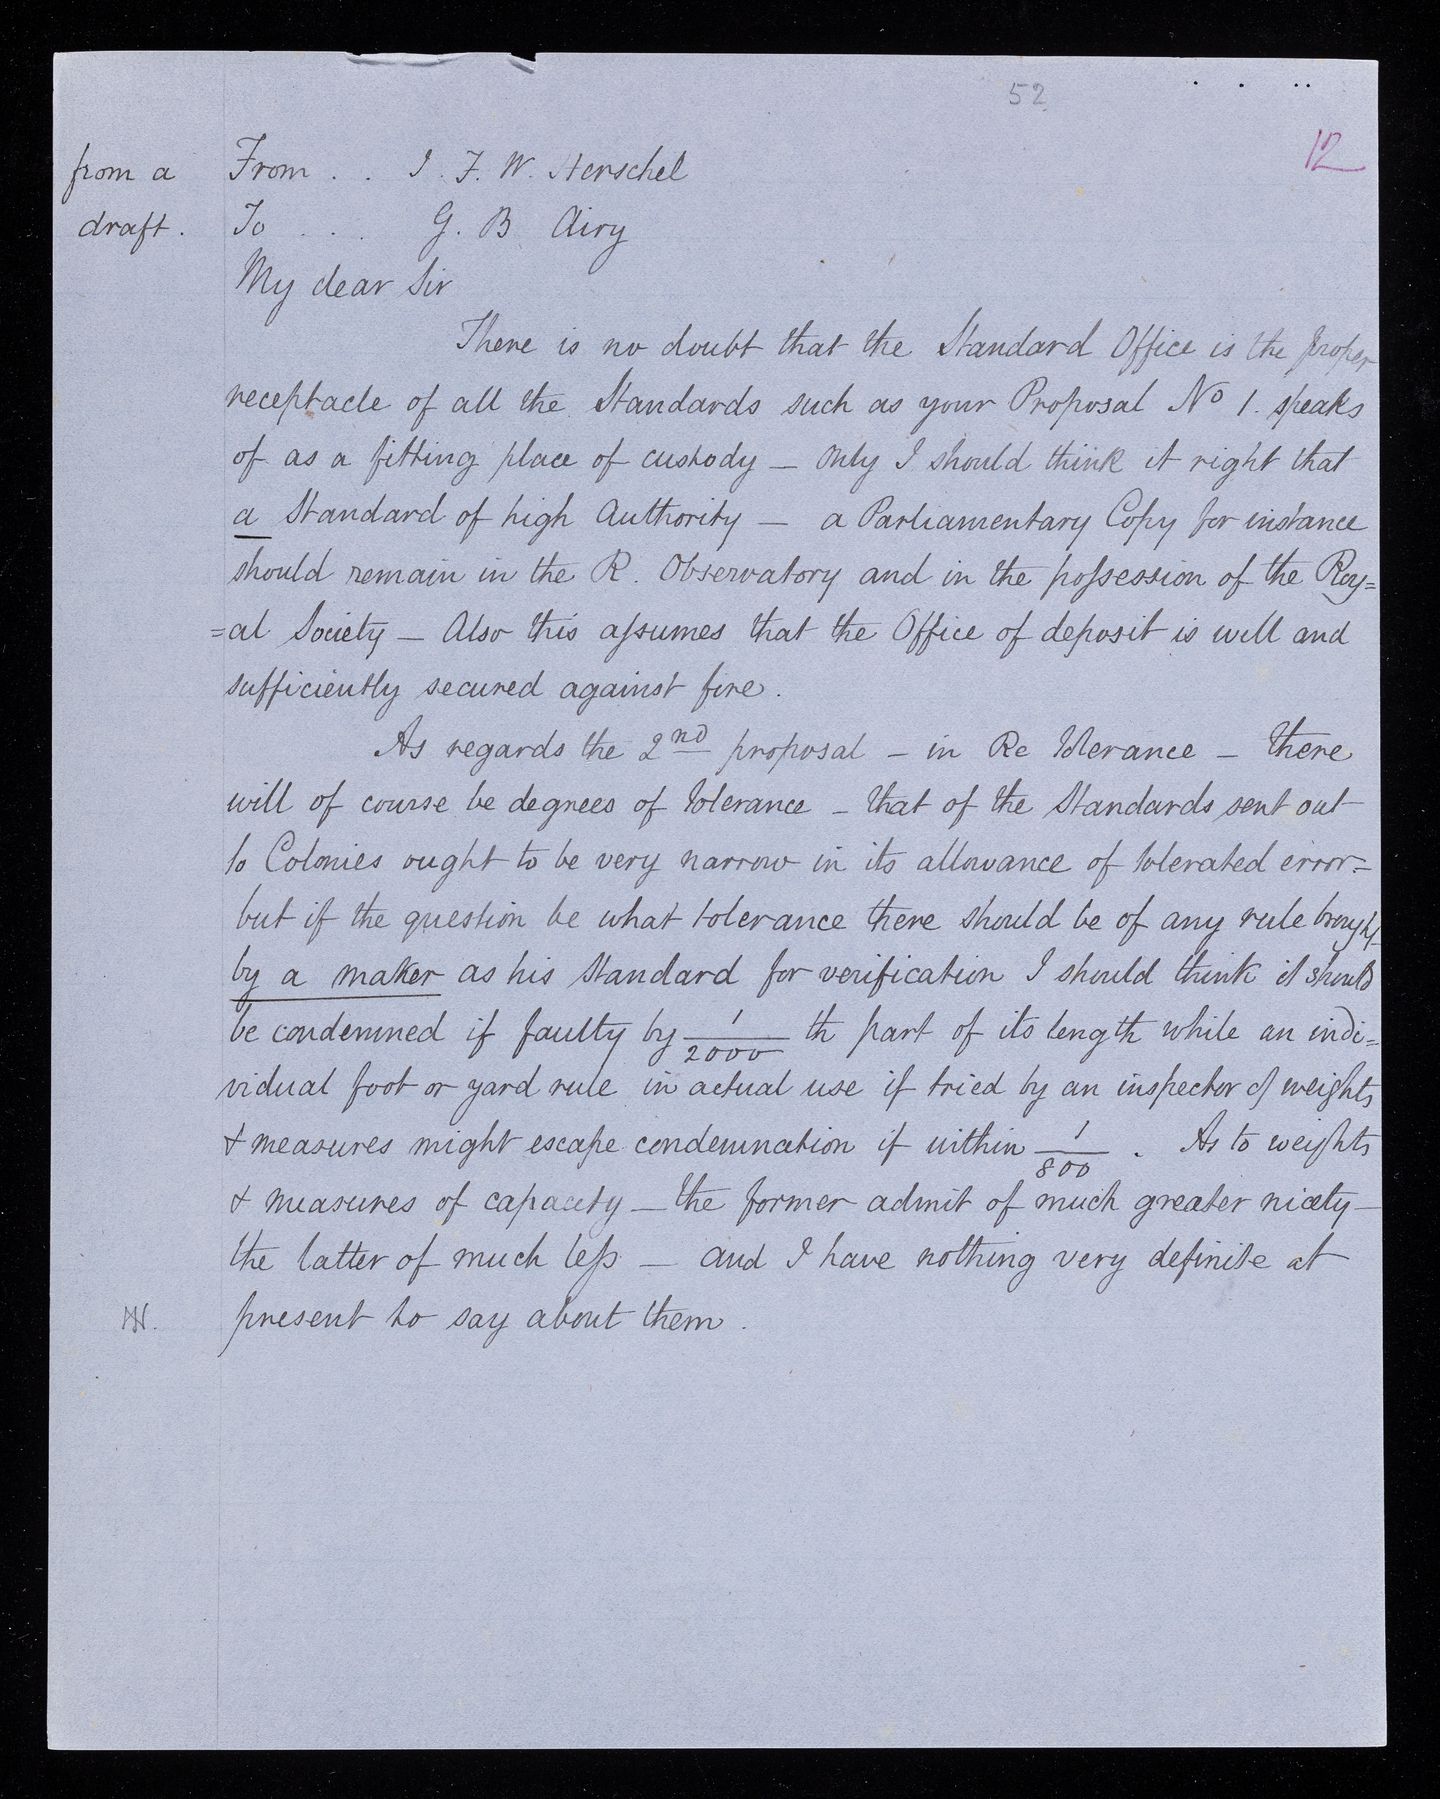 52
12
from a
draft.
From . . J. F. W. Herschel
To . . . G. B Airy
My dear Sir
There is no doubt that the Standard Office is the proper
receptacle of all the Standards such as your Proposal No 1. speaks
of as a fitting place of custody — only I should think it right that
a Standard of high Authority — a Parliamentary Copy for instance
should remain in the R. Observatory and in the possession of the Roy=
=al Society — Also this assumes that the Office of deposit is well and
sufficiently secured against fire.
As regards the 2nd proposal — in Re Tolerance — there
will of course be degrees of Tolerance — that of the Standards sent out
to Colonies ought to be very narrow in its allowance of tolerated error=
but if the question be what tolerance there should be of any rule brought
by a maker as his Standard for verification I should think it should
be condemned if faulty by 1/2000 th part of its length while an indi=
vidual foot or yard rule in actual use if tried by an inspector of weights
& measures might escape condemnation if within 1/800. As to weights
& measures of capacity — the former admit of much greater nicety —
the latter of much less — and I have nothing very definite at
present to say about them.